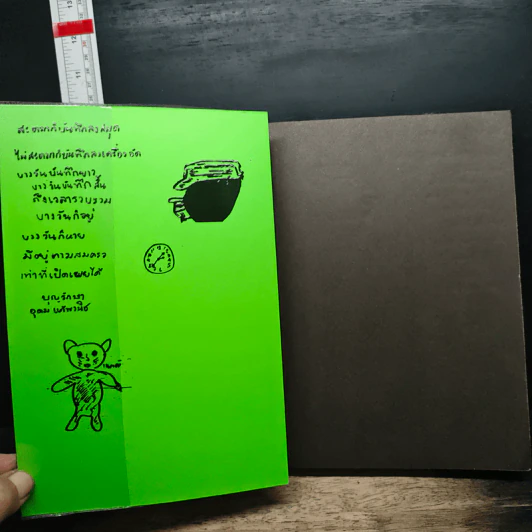 สะดวกก็บันทึกลงสมุด
ไม่สะดวกก็บันทึกลงเครื่องอัด
บางวันบันทึกยาว
บางวันบันทึกสั้น
ถึงเวลารวบรวม
บางวันก็อยู่
บางวันก็หาย
มีอยู่ตามสมควร
เท่าที่เปิดเผยได้
อุดม แต้พานิช